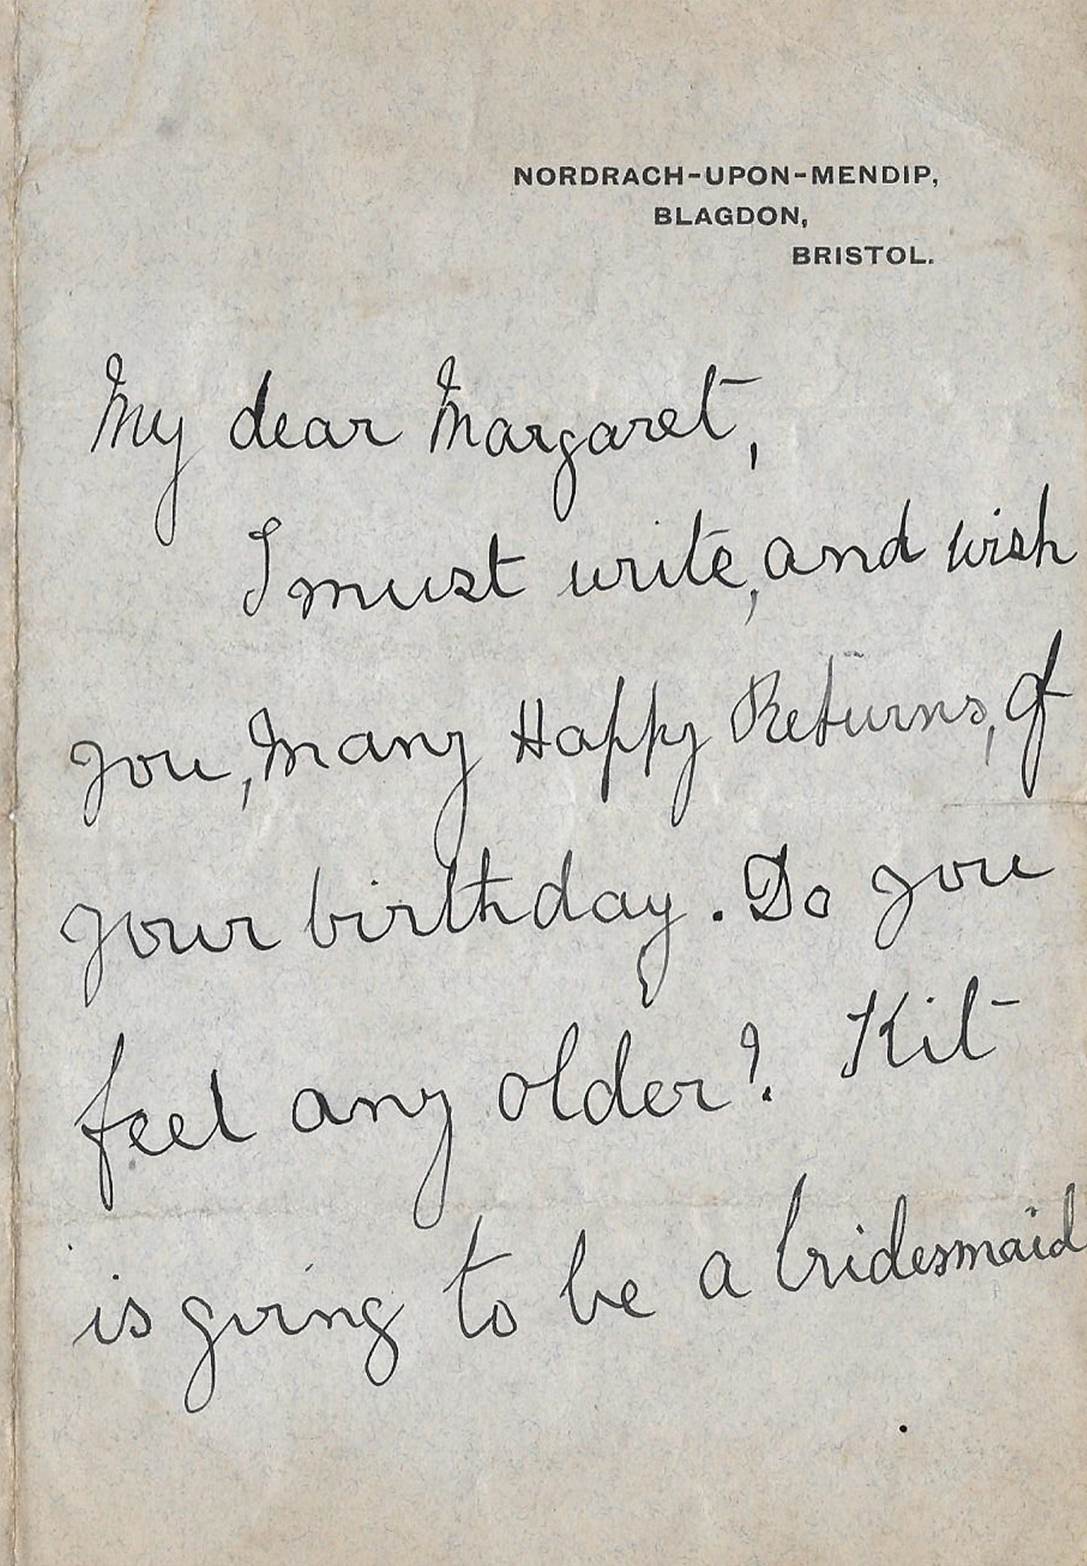 NORDRACH-UPON-MENDIP,
BLAGDON,
BRISTOL.
My dear Margaret,
I must write, and wish
you, Many Happy Returns, of
your birthday. Do you
feel any older? Kit
is going to be a bridesmaid